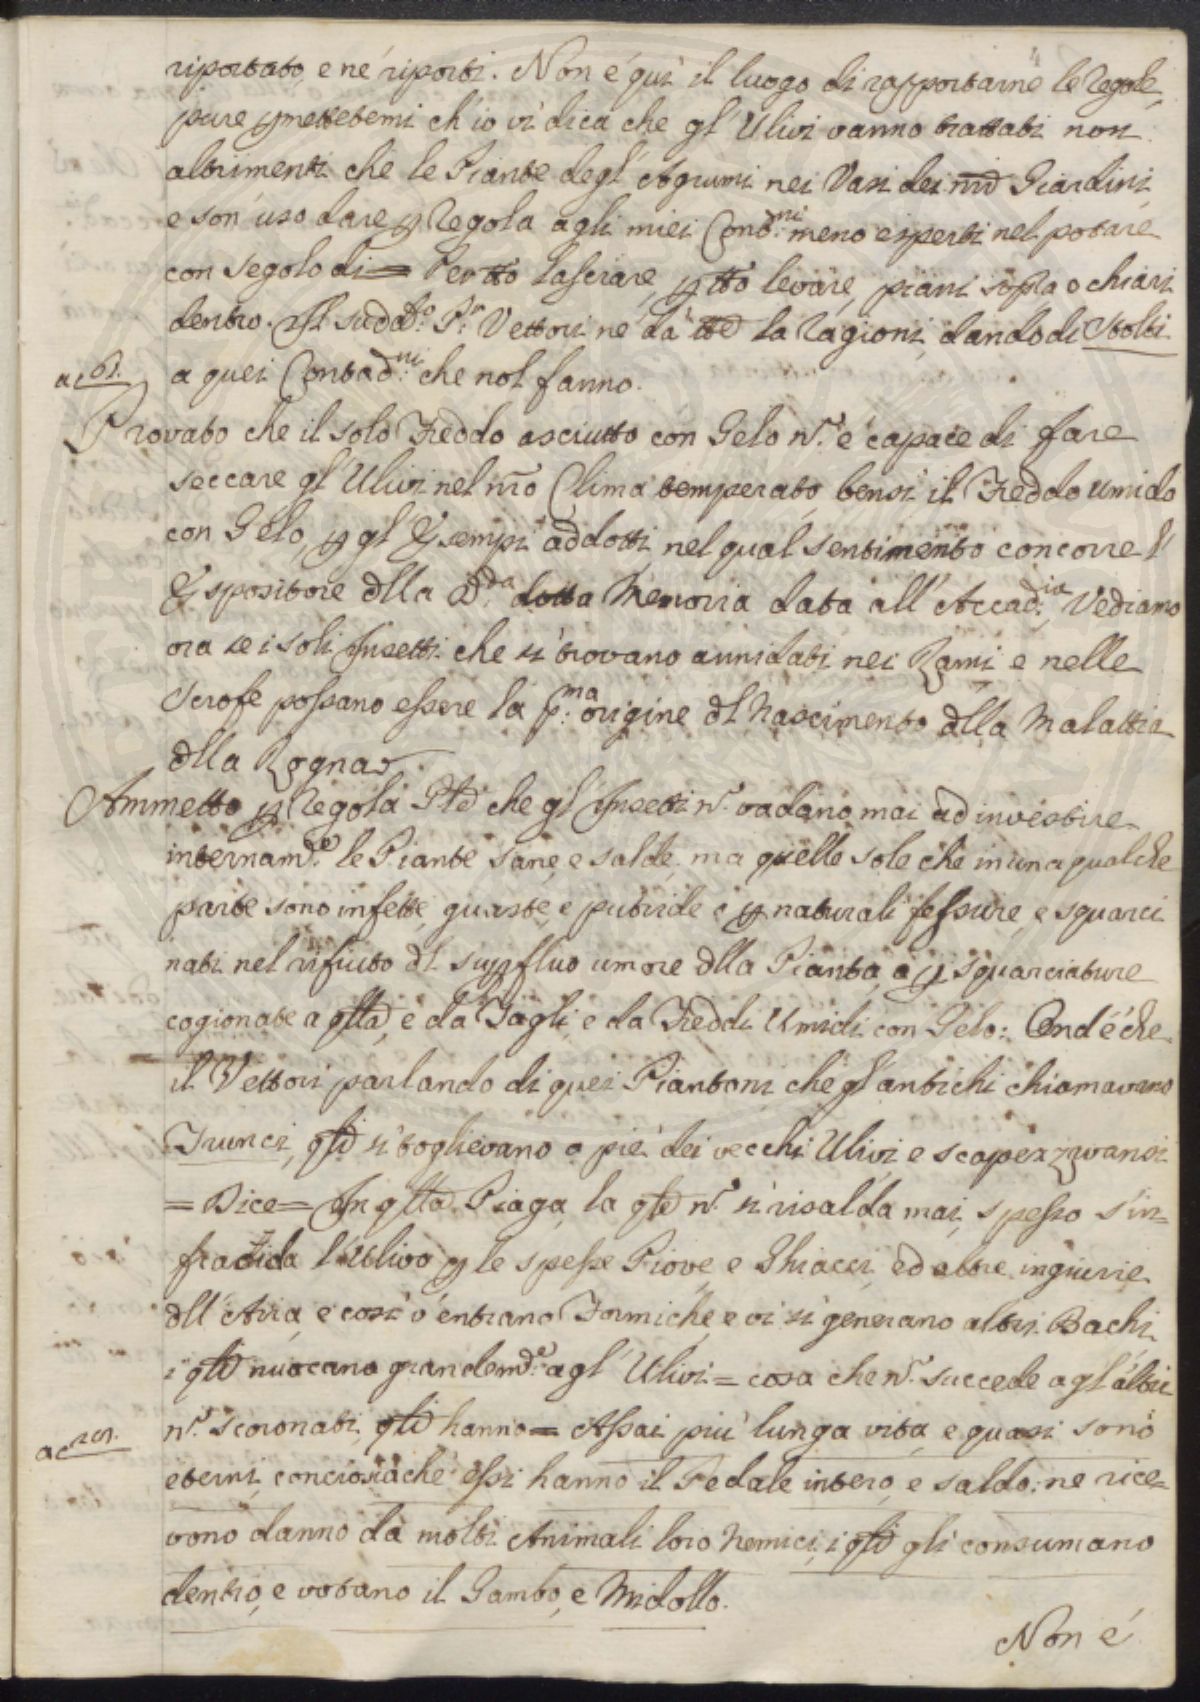 riportato, e nè riporti. Non é qui il luogo di rapportarne le regole,
pure pmettetemi ch'io vi dica che gl'Ulivi vanno trattati non
altrimenti che le Piante degl'Agrumi nei Vasi dei nri Giardini,
e son uso dare p Regola agli miei Contad:ni meno esperti nel potare
con segolo di = Per tto lasciare, p tto levare, piani sopra o chiari
dentro. Il sudd:o P:r Vettori ne dà tte la ragioni, dando di Stolti
a quei Contad:ni che nol fanno.
ac 61.
Provato che il solo Freddo asciutto con Gelo n. é capace di fare
seccare gl'Ulivi nel nro Clima temperato, bensi il Freddo umido
con Gelo, p gl'Esempi addotti, nel qual sentimento concorre l'
Espositore dlla d:da dotta Memoria data all'Accad:ia, Vediamo
ora se i soli Insetti che si trovano annidati nei Rami e nelle
Scrofe possano essere la p:ma origine dl Nascimento dlla Malattia
dlla Rogna.
Ammetto p Regola Gle che gl'Insetti n. vadano mai ad investire
internam:e le Piante sane, e salde, ma quelle sole che in una qualche
parte sono infette, guaste, e putride o p naturali fessure, e squarci
nati nel rifiuto dl suppfluo umore dlla Pianta, o p squarciature
cogionate a qlla, e da Tagli, e da Freddi Umidi con Gelo: Ond'é che
il Vettori parlando di quei Piantoni che gl'antichi chiamavano
Trunci, qli si toglievano a pié dei vecchi Ulivi, e scapezzavansi
= Dice = In qlla Piaga, la qle n. si risalda mai, spesso s'in=
fracida l'Ulivo p le spesse Piove, e Ghiacci, ed altre ingiurie
dll'Aria, e cosi v'entrano Formiche, e vi si generano altri Bachi,
i qli nuocano grandem:e agl'Ulivi = cosa che n. succede agl'altri
n. scoronati, qli hanno = Assai più lunga vita, e quasi sono
ac 101.
eterni, conciosiaché essi hanno il Pedale intero, e saldo: ne rice=
vono danno da molti Animali loro Nemici, i qli gli consumano
dentro, e votano il Gambo, e Midollo.
Non é